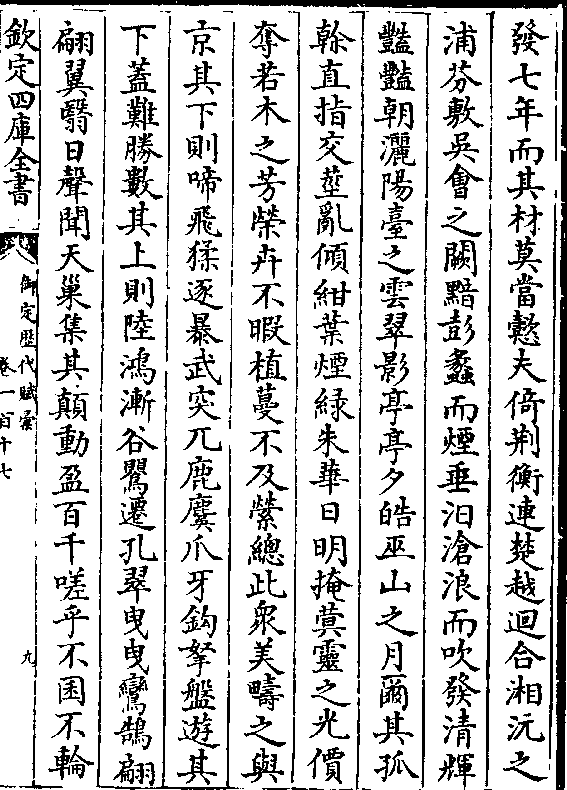 發七年而其材莫當懿夫倚荆衡連楚越迴合湘沅之
浦芬敷吳㑹之闕黯彭蠡而煙垂汨滄浪而吹發清輝
豔豔朝灑陽臺之雲翠影亭亭夕皓巫山之月爾其孤
榦直指交莖亂傾紺葉煙緑朱華日明掩蓂靈之光價
奪若木之芳榮卉不暇植蔓不及縈總此衆美疇之與
京其下則啼飛猱逐暴武突兀鹿麌爪牙鈎拏盤遊其
下蓋難勝數其上則陸鴻漸谷鸎遷孔翠曳曳鸞鵠翩
翩翼翳日聲聞天巢集其顛動盈百千嗟乎不囷不輪
欽定四庫全書
御定歴代賦彙
卷一百十七
九